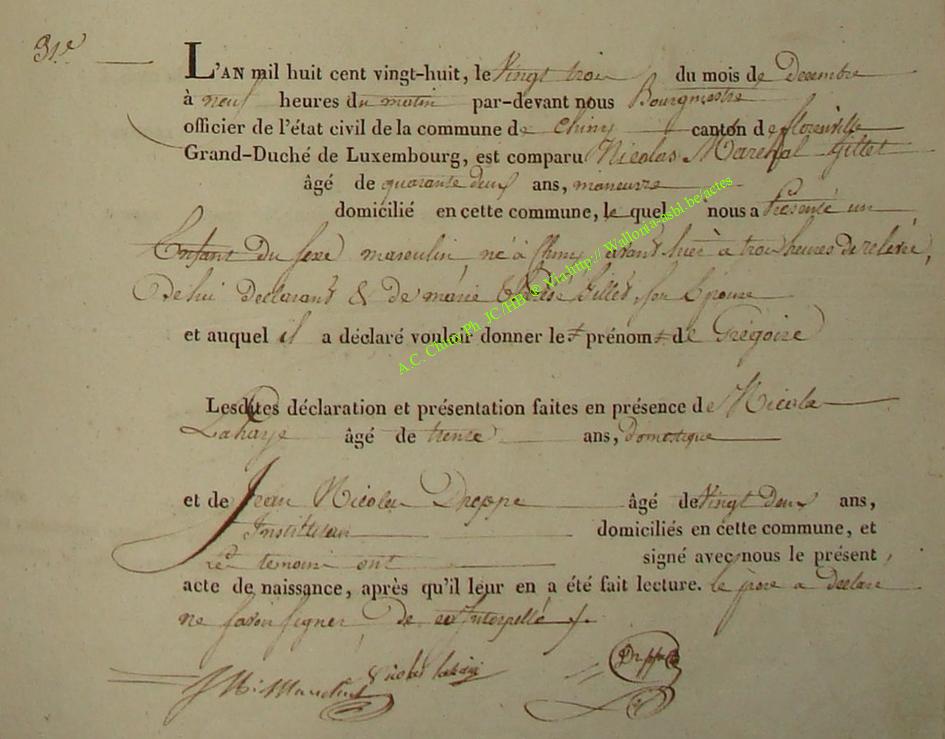 31.e
L'AN mil huit cent vingt-huit, le Vingt trois du mois de Decembre
à neuf heures du matin par-devant nous Bourgmestre
officier de l'état civil de la commune de Chiny canton de florenville
Grand-Duché de Luxembourg, est comparu Nicolas Marechal Gillet
âgé de quarante deux ans, maneuvre
domicilié en cette commune, le quel nous a Présenté un
Enfant du sexe masculin, né à Chiny avant hier à trois heures de relevée,
De lui Déclarant & de marie Gillet, son Epouse
et auquel il a déclaré vouloir donner le prénom de Grégoire
Lesdites déclaration et présentation faites en présence de Nicolas
Lahaye âgé de trente ans, Domestique
et de Jean Nicolas Dreppe âgé de Vingt deux ans,
Instituteur domiciliés en cette commune, et
les temoins ont signé avec nous le présent
acte de naissance, après qu'il leur en a été fait lecture. le père a declaré
ne savoir signer De ce Interpellé
A.C. Chiny Ph. JC/HB © Via http://Wallonia-asbl.be/actes